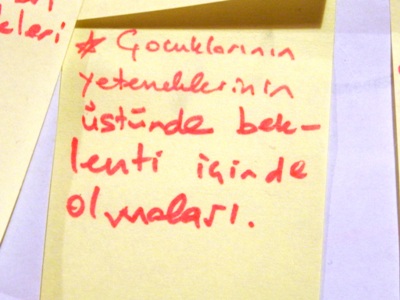 leri
* Çocuklarının
yeteneklerinin
üstünde bek-
lenti içinde
olmaları.